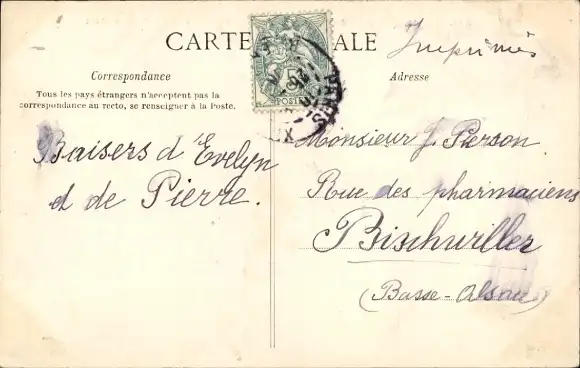 CARTE ALE
Imprimés
Correspondance
Adresse
Tous les pays étrangers n'acceptent pas la
correspondance au recto, se renseigner à la Poste.
5
POSTE
PARIS
Baisers d'Evelyn
et de Pierre.
Monsieur J. Pierson
Rue des pharmaciens
Bischwiller
(Basse-Alsace)